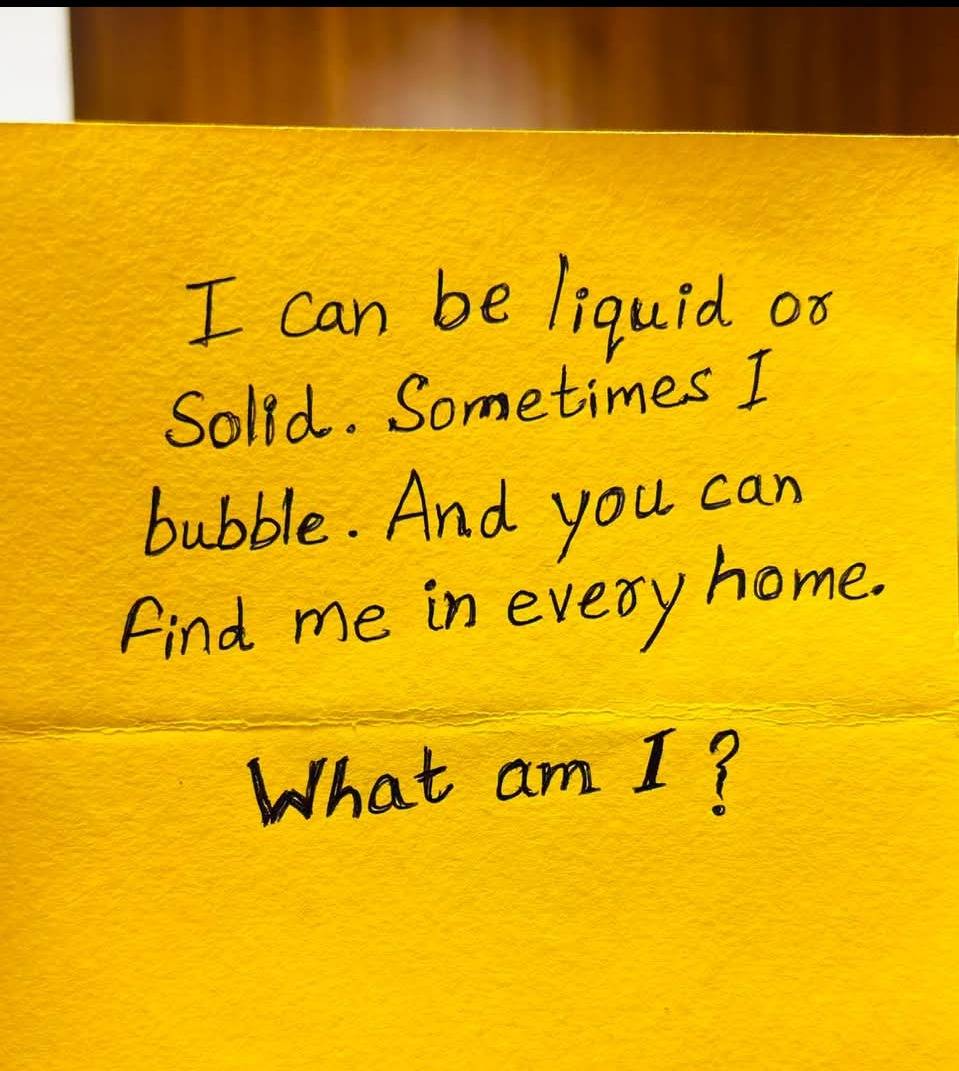 I can be liquid or
Solid. Sometimes I
bubble. And you can
find me in every home.
What am I ?